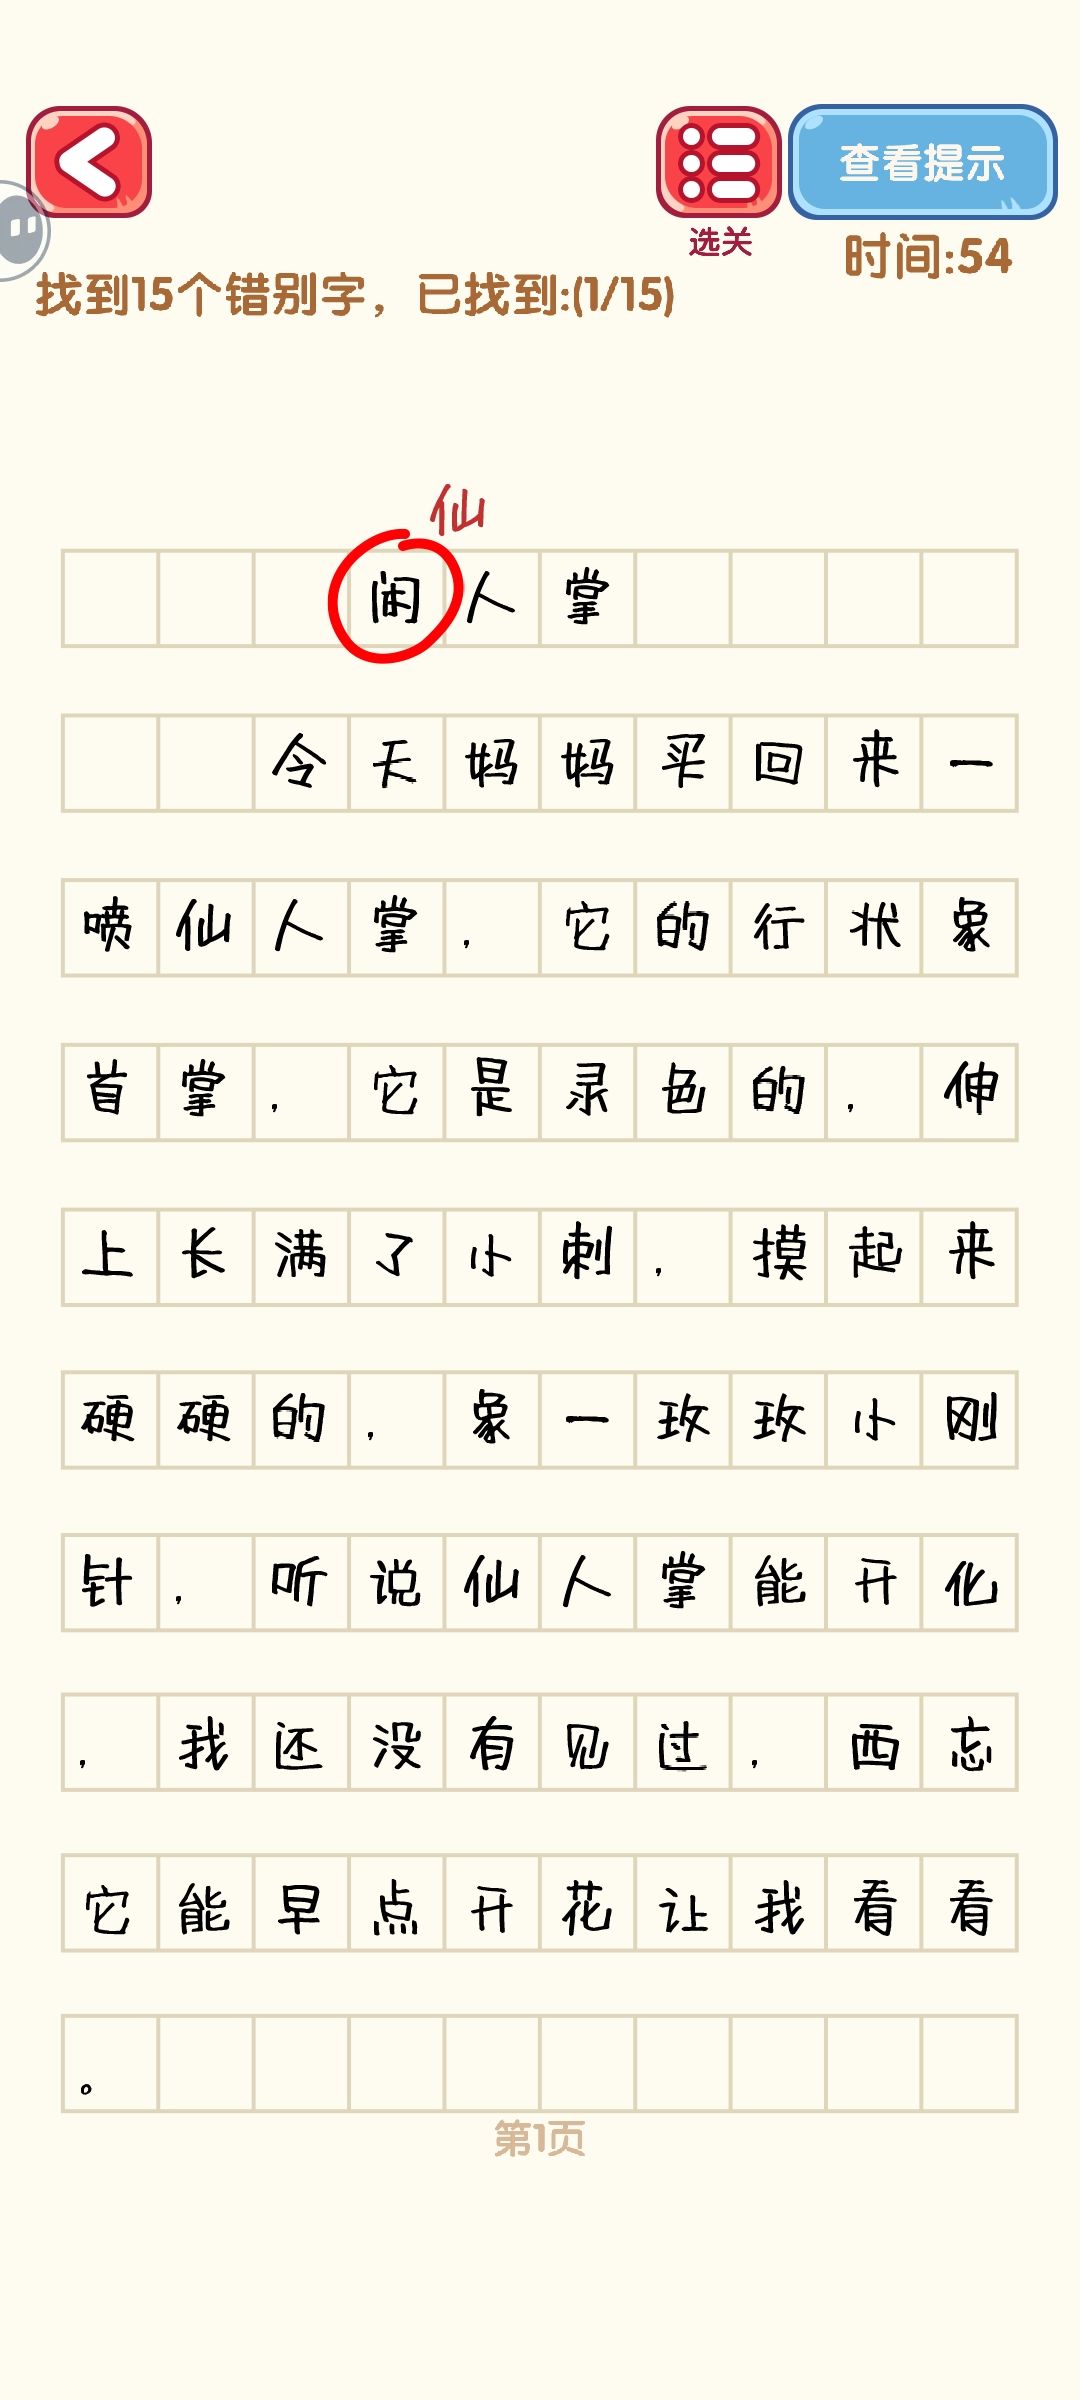 查看提示
选关
时间:54
找到15个错别字，已找到:(1/15)
仙
闲人掌
令天妈妈买回来一
喷仙人掌，它的行状象
首掌，它是录色的，伸
上长满了小刺，摸起来
硬硬的，象一玫玫小刚
针，听说仙人掌能开化
，我还没有见过，西忘
它能早点开花让我看看
。
第1页